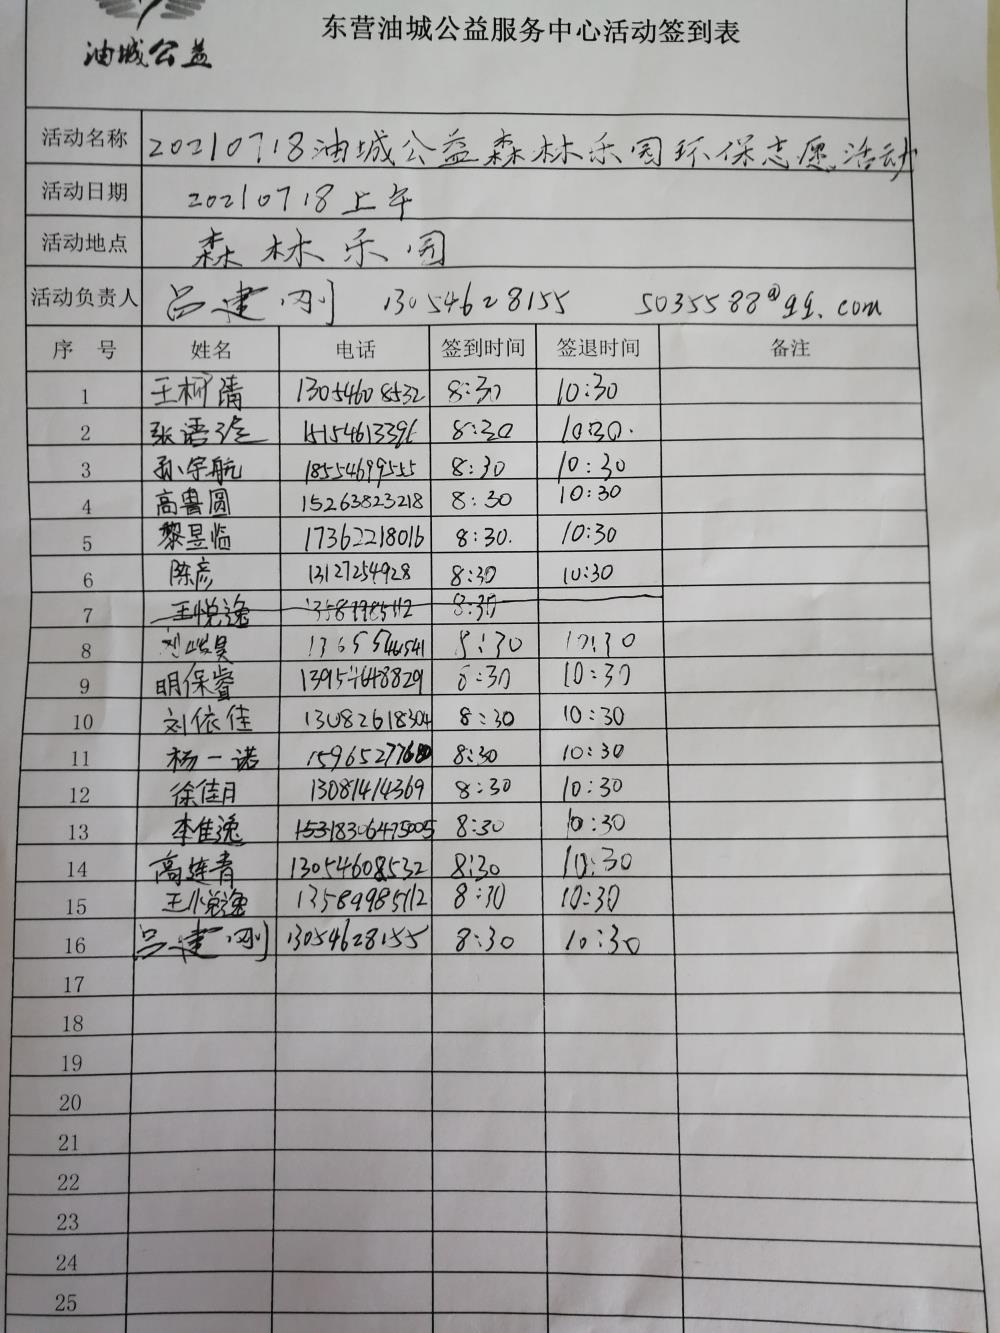 东营油城公益服务中心活动签到表
油城公益
活动名称 20210718油城公益森林乐园环保志愿活动
活动日期 20210718上午
活动地点 森林乐园
活动负责人 吕建刚 13054628155 5035588@qq.com
序号 姓名 电话 签到时间 签退时间 备注
1 王柯清 13054608532 8:30 10:30
2 张语 15154613396 8:30 10:30.
3 孙宇航 18554699555 8:30 10:30
4 高鲁圆 15263823218 8:30 10:30
5 黎昱临 17362218016 8:30. 10:30
6 陈彦 13127254928 8:30 10:30
7 王悦逸 13589985112 8:30
8 刘 8:30 10:30
9 明保睿 13954648829 8:30 10:30
10 刘依佳 13082618304 8:30 10:30
11 杨一诺 15965277680 8:30 10:30
12 徐佳月 13081414369 8:30 10:30
13 李佳逸 8:30 10:30
14 高连青 13054608532 8:30 10:30
15 王悦逸 13589985112 8:30 10:30
16 吕建刚 13054628155 8:30 10:30
17
18
19
20
21
22
23
24
25